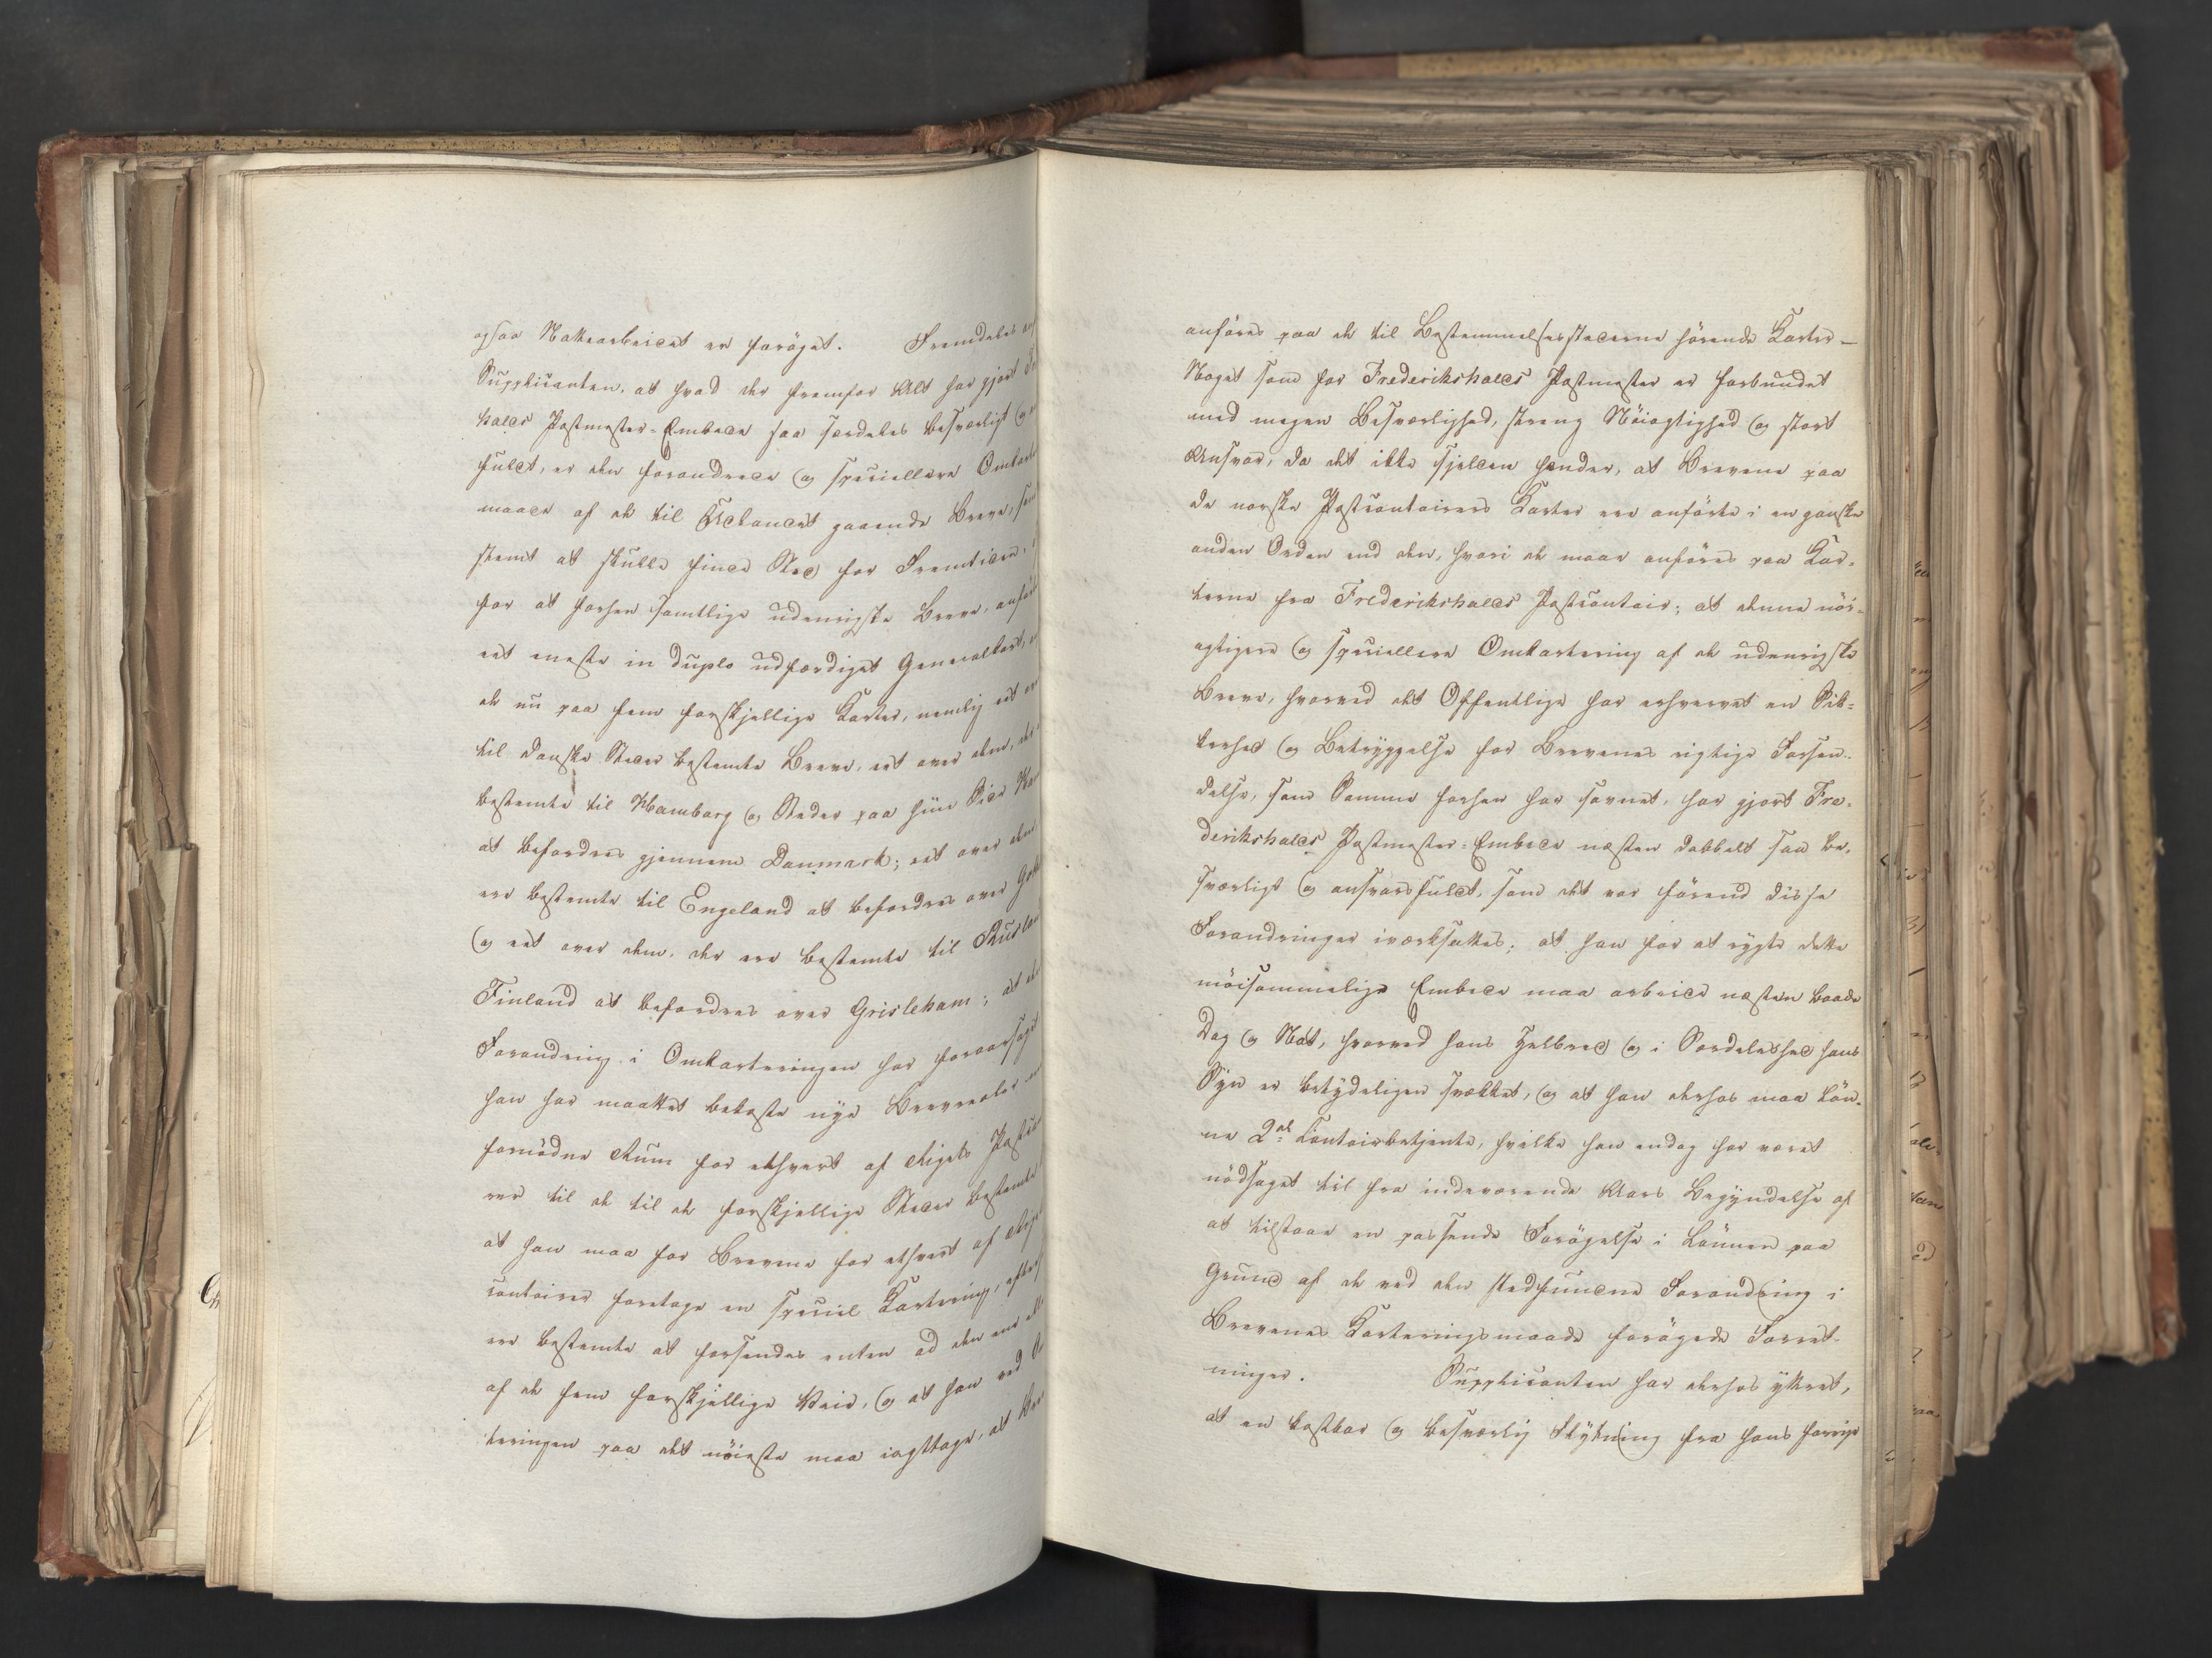 ogsaa Nattearbeidet er forøget. Fremdeles
Supplicanten, at hvad der fremfor Alt har gjort
halds Postmester-Embede saa særdeles besværligt og
fuldt, er den forandrede og speciellere Omkart
maade af de til Udlandet gaaende Breve, som
stemt at skulle finde Sted for Fremtiden,
for at forhen samtlige udenrigske Breve, anfør
eet eneste in duplo udfærdiget Generalkart,
de nu paa fem forskjellige Karter, nemlig eet over
til danske Steder bestemte Breve, eet over dem, der
bestemte til Hamborg og Steder paa hiin Side
at befordres gjennem Danmark; eet over dem
ere bestemte til Engeland at befordres over Goth
og eet over dem, der ere bestemte til Rusland
Finland at befordres over Grisleham; at
Forandring i Omkarteringen har foraarsaget
han har maattet bekoste nye Brevreoler
fornödne Rum for ethvert af Rigets Post
rer til de til de forskjellige Steder bestemte
at han maa for Brevene for ethvert af Rigets
contoirer foretage en speciel Kartering, efter
ere bestemte at forsendes enten ad den ene
af de fem forskjellige Veie, og at han ved
teringen paa det nöieste maa iagttage, at
anføres paa de til Bestemmelsesstederne hörende Karter –
Noget som for Frederikshalds Postmester er forbundet
med megen Besværlighed, streng Nöiagtighed og stort
Ansvar, da det ikke sjelden hender, at Brevene paa
de norske Postcontoirers Karter ere anförte i en ganske
anden Orden end den, hvori de maae anføres paa Kar-
terne fra Frederikshalds Postcontoir; at denne nöi-
agtigere og speciellere Omkartering af de udenrigske
Breve, hvorved det Offentlige har erhvervet en Sik-
kerhed og Betryggelse for Brevenes rigtige Forsen-
delse, som Samme forhen har savnet, har gjort Fre-
derikshalds Postmester-Embede næsten dobbelt saa be-
sværligt og ansvarsfuldt, som det var förend disse
Forandringer iværksattes; at han for at rygte dette
möisommelige Embede maa arbeide næsten baade
Dag og Nat, hvorved hans Helbred og i Særdeleshed hans
Syn er betydeligen svækket, og at han derhos maa lön-
ne 2de Contoirbetjente, hvilke han endog har været
nödsaget til fra indeværende Aars Begyndelse af
at tilstaae en passende Forögelse i Lönnen paa
Grund af de ved den stedfundne Forandring i
Brevenes Karteringsmaade forögede Forret-
ninger. Supplicanten har derhos yttret,
at en kostbar og besværlig Flytning fra hans forrige